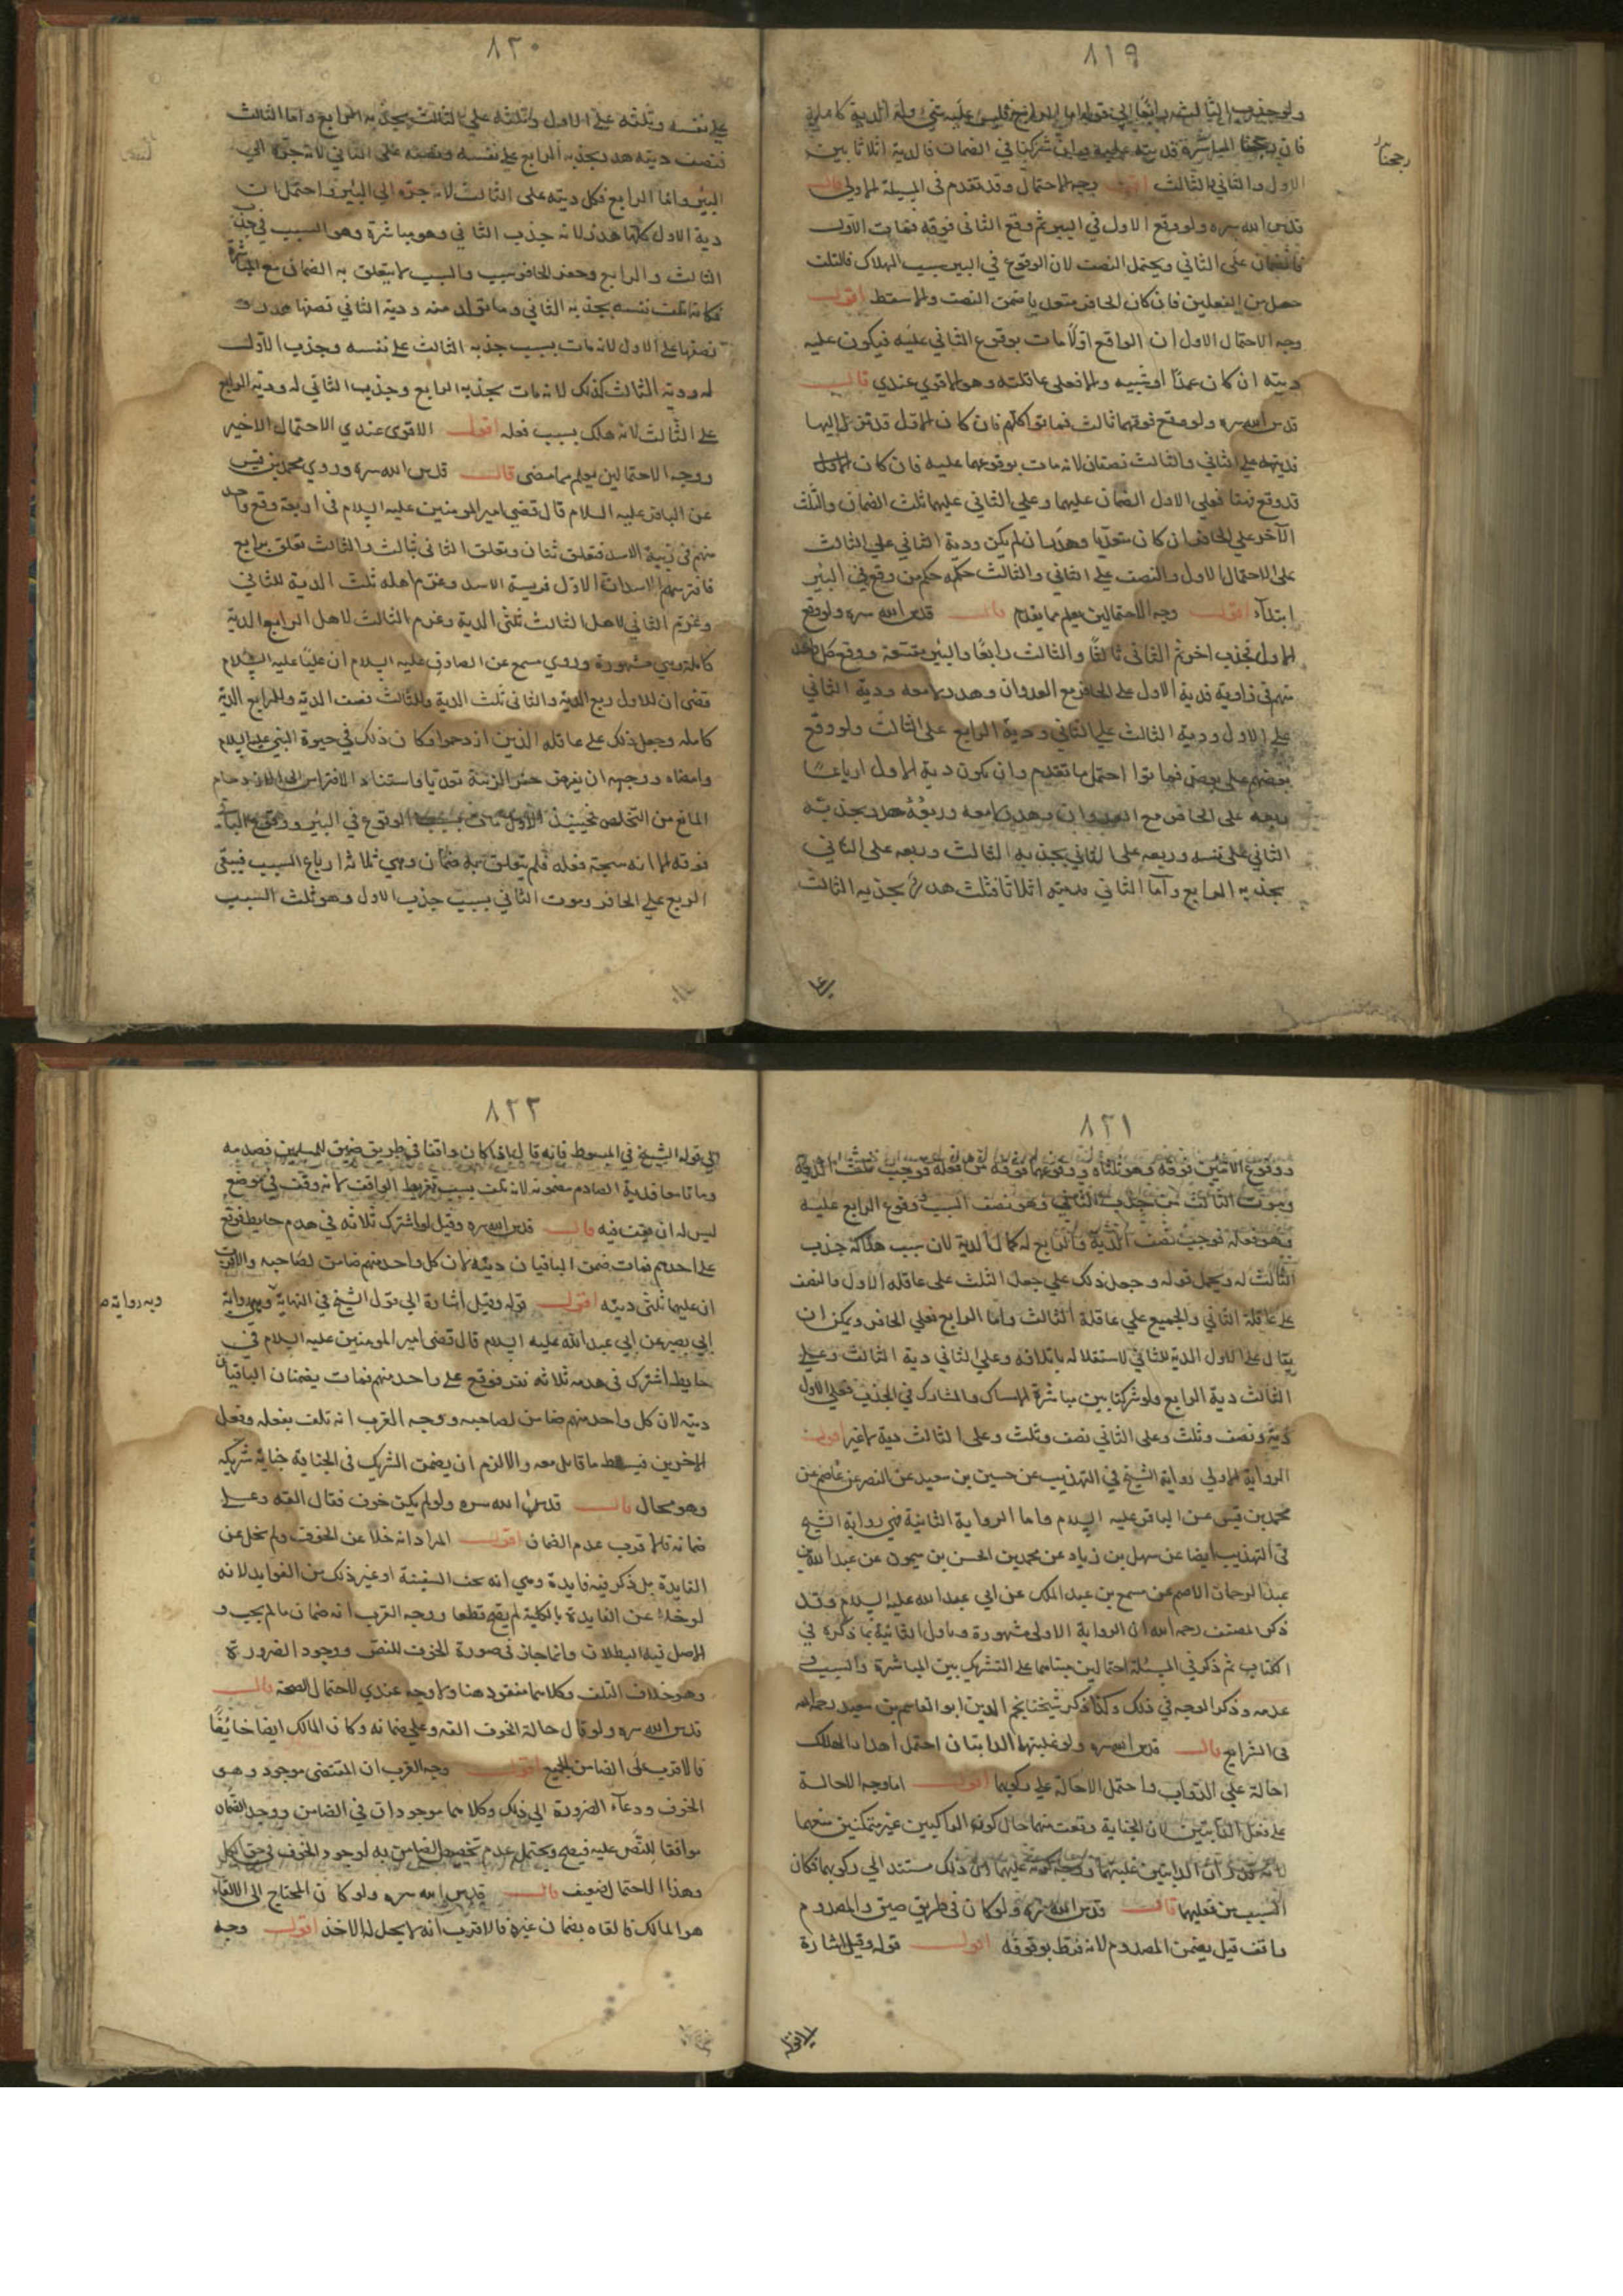 ٨١٩
ولو جذب الثالث رابعا الى قوله اما الرابع فليس عليه شئ وله الدية كاملة
فان رجحنا المباشرة فديته عليه وان شركنا في الضمان فالدية اثلاثا بين
رجحنا
الاول والثاني والثالث اقول وجه الاحتمال وقد تقدم فى المسئلة الاولى قال
قدس الله سره ولو وقع الاول في البير ثم وقع الثانى فوقه فمات الاول
فالضمان على الثاني ويحتمل النصف لان الوقوع في البير سبب الهلاك فالتلف
حصل من الفعلين فان كان الحافر متعديا ضمن النصف والا سقط اقول
وجه الاحتمال الاول ان الواقع اولا مات بوقوع الثاني عليه فيكون عليه
ديته ان كان عمدا او شبيه والا فعلى عاقلته وهو الاقوى عندي قال
قدس الله سره ولو وقع فوقهما ثالث فماتوا كلهم فان كان الاول قد نزل اليها
فديته على الثاني والثالث نصفان لانه مات بوقوعهما عليه فان كان الاول
قد وقع فيها فعلى الاول الضمان عليهما وعلى الثاني عليهما ثلث الضمان والثلث
الآخر على الحافر ان كان متعديا وهدر ان لم يكن ودية الثاني على الثالث
على الاحتمال الاول والنصف على الثاني والثالث حكمه حكم من وقع في البئر
ابتداء اقول وجه الاحتمالين يعلم مما يقدم قال قدس الله سره ولو وقع
الاول فجذب اخر ثم الثانى ثالثا والثالث رابعا والبئر متسعة ووقع كل واحد
منهم فى زاوية فدية الاول على الحافر مع العدوان وهدر لا معه ودية الثاني
على الاول ودية الثالث على الثاني ودية الرابع على الثالث ولو وقع
بعضهم على بعض فماتوا احتمل ما تقدم وان يكون دية الاول ارباعا
ربعه على الحافر مع العدوان وهدر لا معه وربعه هدر بجذبه
الثاني على نفسه وربعه على الثاني بجذبه الثالث وربعه على الثاني
بجذبه الرابع واما الثاني فديته اثلاثا فثلث هدر بجذبه الثالث
٨٢٠
على نفسه وثلثه على الاول وثلثه على الثالث بجذبه الرابع واما الثالث
فنصف ديته هدر بجذبه الرابع على نفسه ونصفه على الثاني لانه جره الى
البئر واما الرابع فكل ديته على الثالث لانه جره الى البئر واحتمل ان
دية الاول كلها هدر لانه جذب الثاني وهو مباشرة وهو السبب في جذب
الثالث والرابع وحفر الحافر سبب والسبب لا يتعلق به الضمان مع المباشرة
فكانه اتلف نفسه بجذبه الثاني وما تولد منه ودية الثاني نصفها هدر و
نصفها على الاول لانه مات بسبب جذبه الثالث على نفسه وجذب الاول
له ودية الثالث كذلك لانه مات بجذبه الرابع وجذب الثاني له ودية الرابع
على الثالث لانه هلك بسبب فعله اقول الاقوى عندي الاحتمال الاخير
ووجه الاحتمالين يعلم مما مضى قال قدس الله سره وروي محمد بن قيس
عن الباقر عليه السلام قال قضى امير المومنين عليه السلام فى اربعة وقع واحد
منهم فى زبية الاسد فتعلق بثان وتعلق الثانى بثالث والثالث تعلق برابع
فافترسهم الاسد ان الاول فريسة الاسد وغرم اهله ثلث الدية للثاني
وغرم الثاني لاهل الثالث ثلثي الدية وغرم الثالث لاهل الرابع الدية
كاملة وهي مشهورة وروي مسمع عن الصادق عليه السلام ان عليا عليه السلام
قضى ان للاول ربع الدية والثانى ثلث الدية وللثالث نصف الدية وللرابع الدية
كاملة وجعل ذلك على عاقلة الذين ازدحموا وكان ذلك في حيوة النبي عليه السلام
وامضاه ووجهه ان يفرض حفر الزبية تعديا واستناد الافتراس الى الازدحام
المانع من التخلص فحينئذ الاول مات بسبب الوقوع في البئر ووقوع الباقي
فوقه الا انه نتيجة فعله فلم يتعلق به ضمان وهي ثلاثة ارباع السبب فيبقى
الربع على الحافر وموت الثاني بسبب جذب الاول وهو ثلث السبب
٨٢١
ووقوع الاخيرين فوقه وهو ثلثاه ووقوعهما فوقه من فعله فوجب ثلث الدية
وموت الثالث من جذب الثاني وهو نصف السبب ووقوع الرابع عليه
وهو فعله فوجب نصف الدية والرابع له كمال الدية لان سبب هلاكه جذب
الثالث له ويحمل قوله وجعل ذلك على جعل الثلث على عاقلة الاول والنصف
على عاقلة الثاني والجميع على عاقلة الثالث واما الرابع فعلى الحافر ويمكن ان
يقال على الاول الدية للثاني لاستقلاله باتلافه وعلى الثاني دية الثالث وعلى
الثالث دية الرابع ولو شركنا بين مباشرة الامساك والمشارك في الجذب فعلى الاول
دية ونصف وثلث وعلى الثاني نصف وثلث وعلى الثالث دية لا غير اقول
الرواية الاولى رواية الشيخ في التهذيب عن حسين بن سعيد عن النصر عن عاصم عن
محمد بن قيس عن الباقر عليه السلام واما الرواية الثانية فهي رواية الشيخ
فى التهذيب ايضا عن سهل بن زياد عن محمد بن الحسن بن ميمون عن عبد الله بن
عبد الرحمان الاصم عن مسمع بن عبد الملك عن ابي عبد الله عليه السلام وقد
ذكر المصنف رحمه الله ان الرواية الاولى مشهورة وتاول الثانية بما ذكره في
الكتاب ثم ذكر في المسئلة احتمالين مبناهما على التشريك بين المباشرة والسبب و
عدمه وذكر الوجه في ذلك وكذا ذكر شيخنا نجم الدين ابو القاسم بن سعيد رحمه الله
فى الشرايع قال قدس الله سره ولو غلبتهما الدابتان احتمل اهدار الهالك
احالة على الدواب واحتمل الاحالة على ركوبهما اقول اما وجه الاحالة
على فعل الدابتين لان الجناية وقعت منهما حال كون الراكبين غير متمكنين منعهما
السبب من فعليهما قال قدس الله سره ولو كان فى طريق ضيق والمصدوم
واقف قيل يضمن المصدوم لانه فرط بوقوفه اقول قوله وقيل اشارة
٨٢٢
الى قول الشيخ في المبسوط فانه قال اذا كان واقفا في طريق ضيق للمسلمين فصدمه
وماتا معا فدية الصادم مضمونه لانه تلف بسبب تفريط الواقف لانه وقف في موضع
ليس له ان يقف فيه قال قدس الله سره وقيل لو اشترك ثلاثه في هدم حايط فوقع
على احدهم فمات ضمن الباقيان ديته لان كل واحد منهم ضامن لصاحبه والاقرب
ان عليهما ثلثي ديته اقول قوله وقيل اشارة الى قول الشيخ في النهاية وبه رواية
وبه رواية
ابي بصير عن ابي عبد الله عليه السلام قال قضى امير المومنين عليه السلام في
حايط اشترك فى هدمه ثلاثه نفر فوقع على واحد منهم فمات يضمنان الباقيان
ديته لان كل واحد منهم ضامن لصاحبه ووجه القرب انه تلف بفعله وفعل
الاخرين فيسقط ما قابل فعله والا لزم ان يضمن الشريك فى الجناية جناية شريكه
وهو محال قال قدس الله سره ولو لم يكن خوف فقال القه وعلي
ضمانه فالاقرب عدم الضمان اقول المراد انه خلا عن الخوف ولم يخل عن
الفايدة بل ذكر فيه فايدة وهي انه يخف السفينة او غير ذلك من الفوايد لانه
لو خلا عن الفايدة بالكلية لم يصح قطعا ووجه القرب انه ضمان ما لم يجب و
الاصل فيه البطلان وانما جاز فى صورة الخوف للنص ووجود الضرورة
وهو خلاف التلف وكلاهما مفقود هنا ولا وجه عندي لاحتمال الصحة قال
قدس الله سره ولو قال حالة الخوف القه وعلي ضمانه وكان المالك ايضا خائفا
فالاقرب على الضامن الجميع اقول وجه القرب ان المقتضى موجود وهو
الخوف ودعاء الضرورة الى ذلك وكلاهما موجودان في الضامن ووجد الضمان
موافقا للنص عليه فيصح ويحتمل عدم تخصيص الضامن به لوجود الخوف في حق الكل
وهذا الاحتمال ضعيف قال قدس الله سره ولو كان المحتاج الى الالقاء
هو المالك فالقاه بضمان غيره فالاقرب انه لا يحل له الاخذ اقول وجه